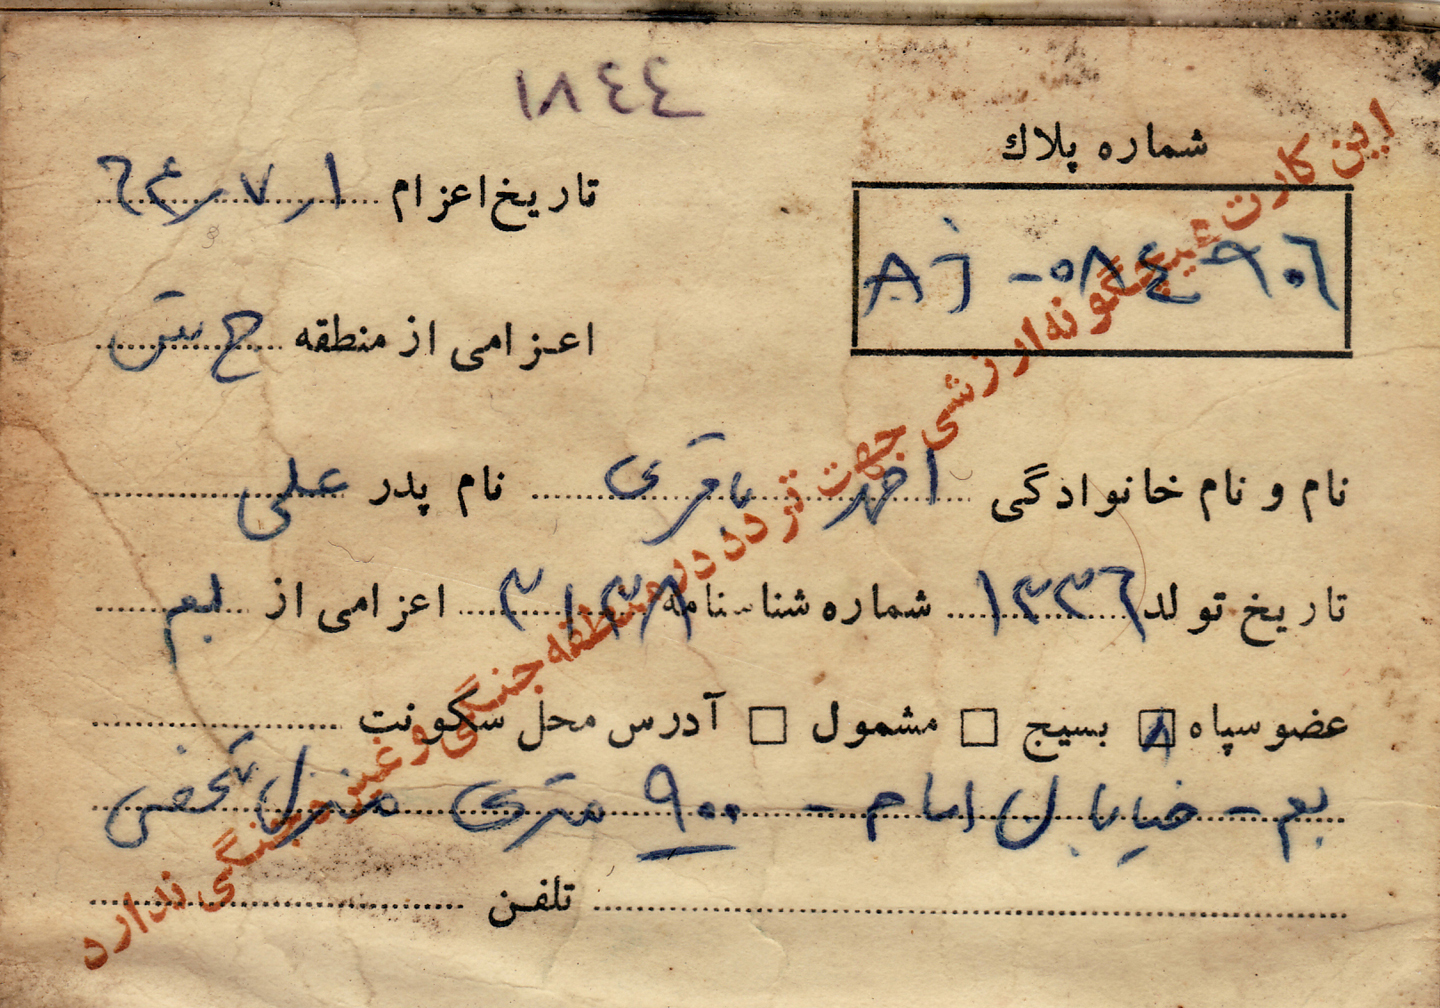 ۱۸۴۴
شماره پلاك
تاریخ اعزام ۶۴/۷/۱
AJ - ۰۸۴ ۹۰۶
اعزامی از منطقه
نام و نام خانوادگی احمد باقری نام پدر علی
تاریخ تولد ۱۳۳۶ شماره شناسنامه ۳۱۳۸ اعزامی از بم
عضو سپاه بسیج مشمول آدرس محل سکونت
بم - خیابان امام - ۹۰۰ متری منزل شخصی
تلفن
این کارت هیچگونه ارزشی جهت تردد در منطقه جنگی و غیر جنگی ندارد